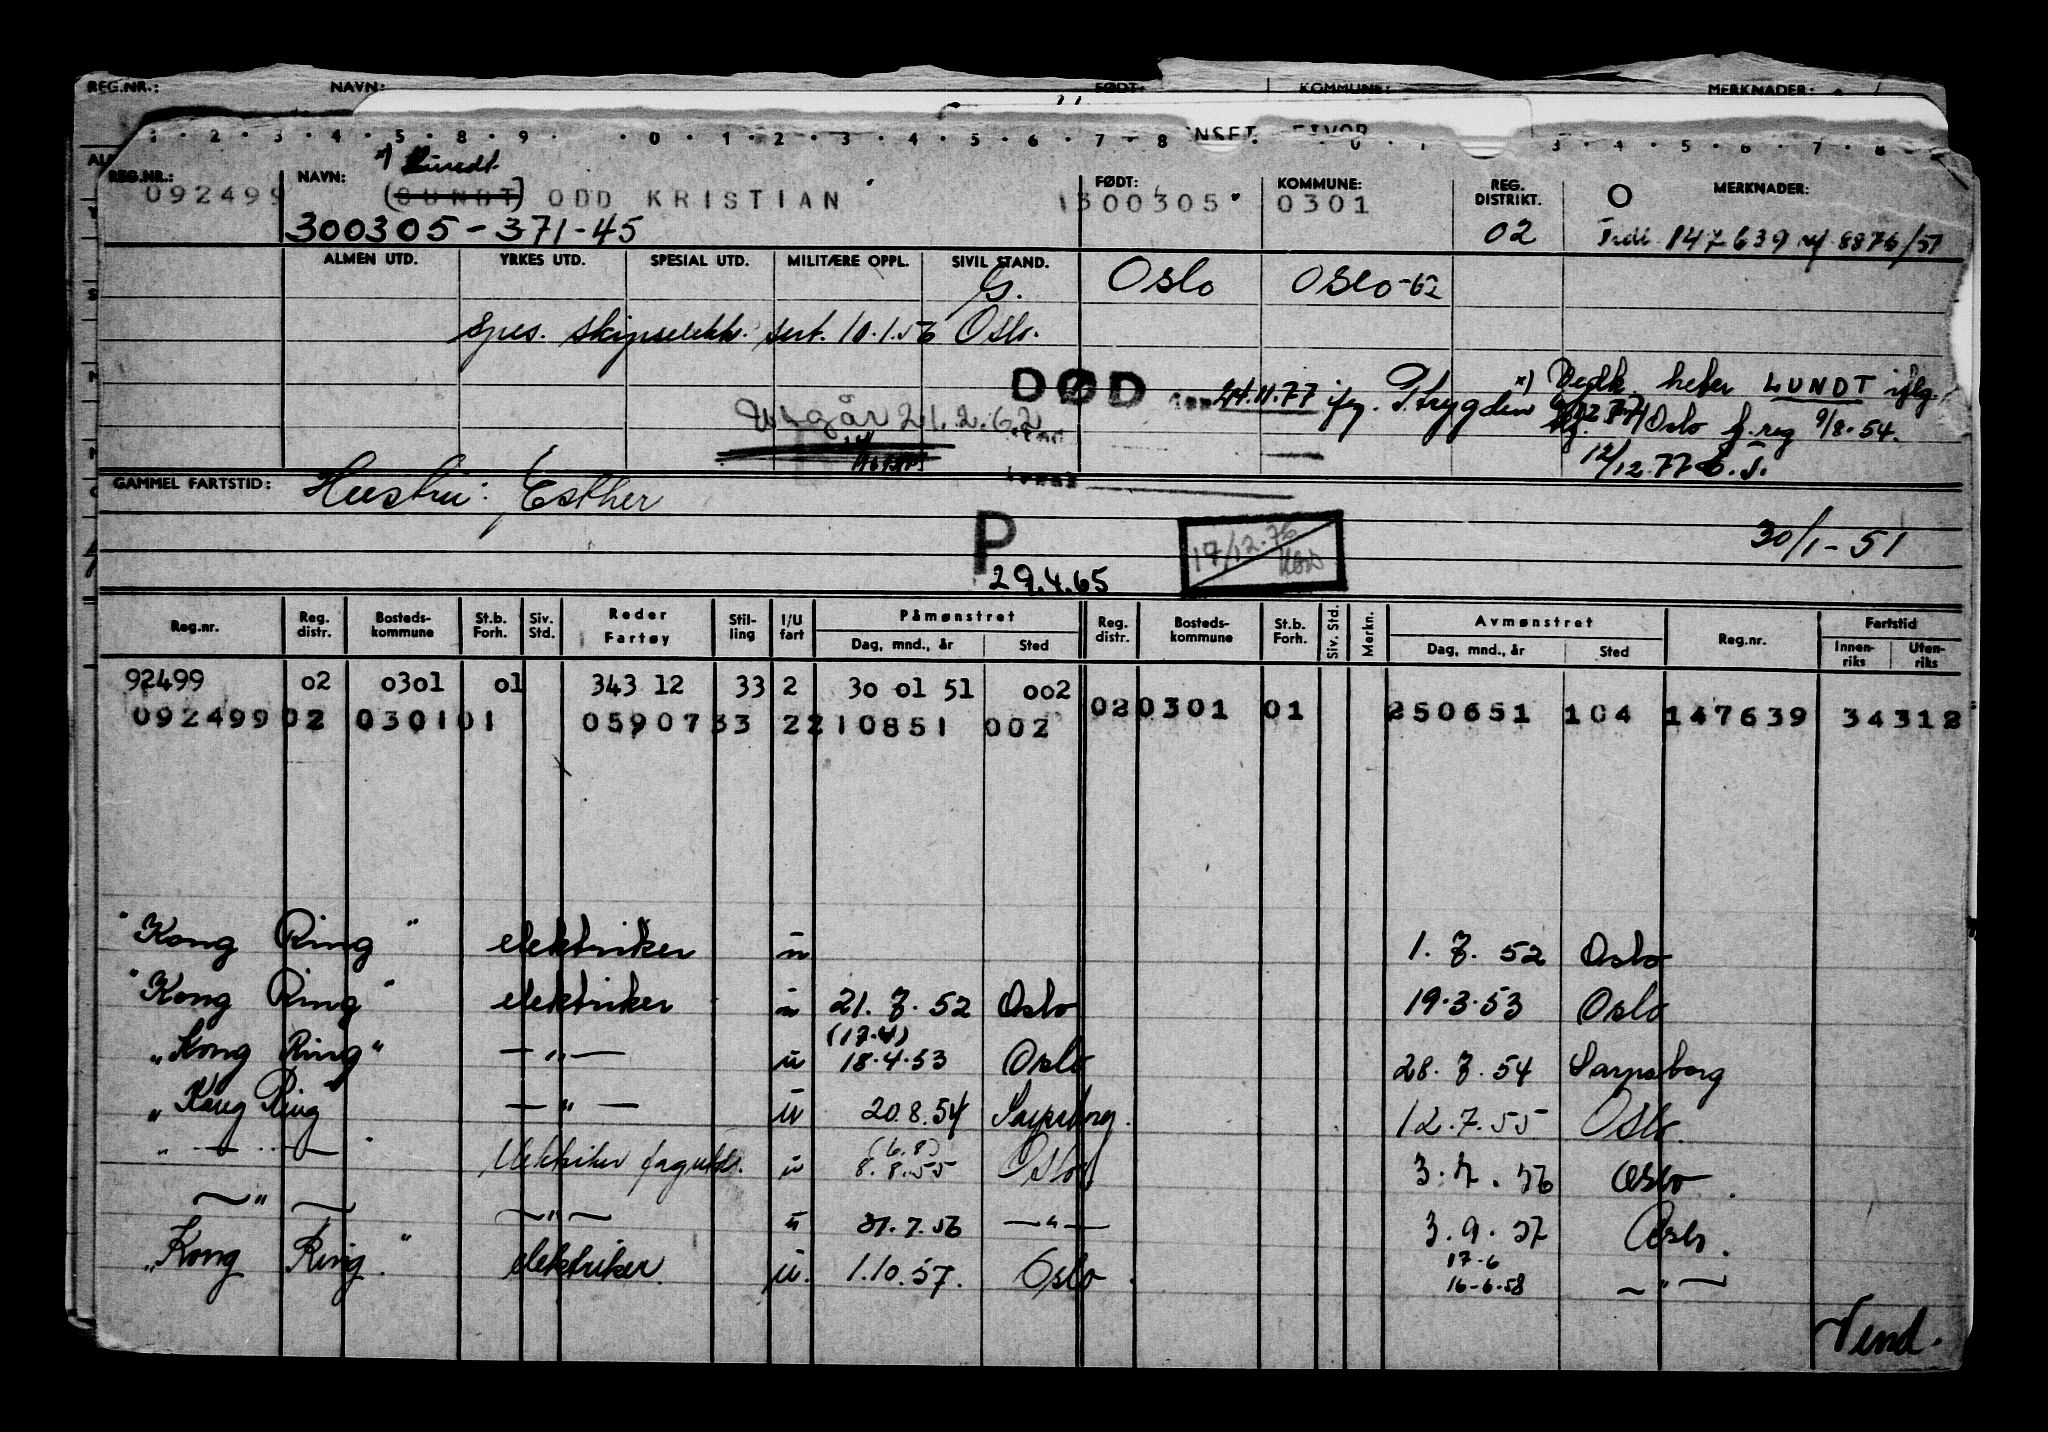 REG.NR.: NAVN: FØDT: KOMMUNE: MERKNADER:
1 · 2 · 3 · 4 · 5 · 8 · 9 · · 0 · 1 · 2 · 3 · 4 · 5 · 6 · 7 · 8
3 · 4 · 5 · 6 · 7 · 8
x) Lundt
REG.NR.: NAVN: FØDT: KOMMUNE: REG. DISTRIKT. O MERKNADER:
092499 (SUNDT) ODD KRISTIAN 300305 0301
300305-371-45 02 Tidl. 147639 8876/51
ALMEN UTD. YRKES UTD. SPESIAL UTD. MILITÆRE OPPL. SIVIL STAND.
G. Oslo Oslo-62
Spes. skipselektr. sert. 10.1.56 Oslo.
DØD 24.11.77 ifg. P.trygden
x) Vedk. heter LUNDT iflg.
Oslo f.reg 9/8-54.
Utgår 21.2.62
12/12.77
GAMMEL FARTSTID: Hustru: Esther
30/1-51
P 29.4.65
17/12.76
Reg.nr. Reg. distr. Bosteds-kommune St.b. Forh. Siv. Std. Reder Fartøy Stil-ling I/U fart Påmønstret Reg. distr. Bosteds-kommune St.b. Forh. Siv. Std. Merkn. Avmønstret Reg.nr. Fartstid
Dag, mnd., år Sted Dag, mnd., år Sted Innen-riks Uten-riks
92499 02 0301 01 343 12 33 2 30 01 51 002
092499 02 0301 01 05907 33 2 210851 002 02 0301 01 250651 104 147639 34312
"Kong Ring" elektriker u 1. 7. 52 Oslo
"Kong Ring" elektriker u 21. 7. 52 Oslo 19.3.53 Oslo
(17.4)
"Kong Ring" — " — u 18.4.53 Oslo 28. 7. 54 Sarpsborg
"Kong Ring" — " — u 20.8.54 Sarpsborg. 12.7.55 Oslo.
(6.8)
" — " — " Elektriker fagutd. u 8.8.55 Oslo 3.7.56 Oslo.
— " — — " — u 31.7.56 — " — 3.9.57 Oslo.
17-6
"Kong Ring" elektriker. u. 1.10.57. Oslo. 16-6-58 — " —
Vend.